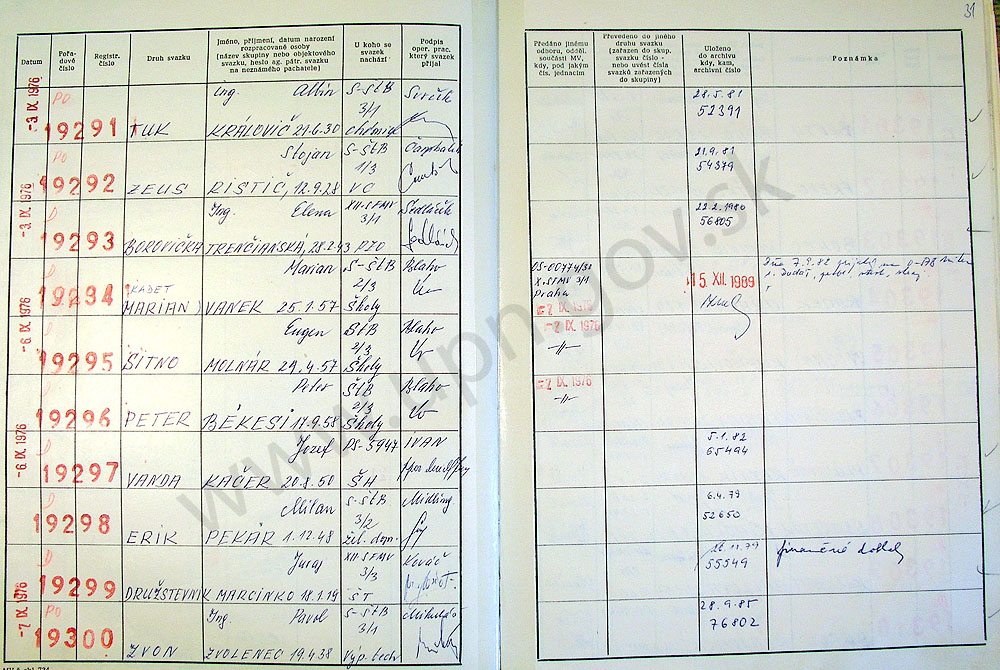 31
Datum
Pořadové číslo
Registr. číslo
Druh svazku
Jméno, příjmení, datum narození
rozpracované osoby
(název skupiny nebo objektového
svazku, heslo ag. pátr. svazku
na neznámého pachatele)
U koho se
svazek
nachází
Podpis
oper. prac.
který svazek
přijal
Předáno jinému
odboru, odděl.
součásti MV,
kdy, pod jakým
čís. jednacím
Převedeno do jiného
druhu svazku
(zařazen do skup.
svazku číslo -
nebo uvést čísla
svazků zařazených
do skupiny)
Uloženo
do archivu
kdy, kam,
archivní číslo
Poznámka
-3. IX. 1976
PO
19291
TUK
ing. Albín
KRÁLOVIČ 21.6.30
S-ŠtB
3/1
28.5.81
52391
PO
19292
ZEUS
Stojan
RISTIČ, 12.9.28
S-ŠtB
1/3
VC
21.9.81
54379
-3. IX. 1976
D
19293
BOROVIČKA
Ing. Elena
TRENČIANSKÁ, 28.2.43
XII.SFMV
3/1
PZO
Sedláčik
22.2.1980
56805
D
19294
(KADET
MARIAN)
Marian
VANEK 25.1.57
S-ŠtB
2/3
Školy
Blaho
OS-00474/31
X.SFMV 3/1
Praha
-7. IX. 1976
15. XII. 1989
Dňa 7.9.82
-6. IX. 1976
19295
SITNO
Eugen
MOLNÁR 29.4.57
ŠtB
2/3
Školy
Blaho
-7. IX. 1976
-//-
19296
PETER
Peter
BÉKESI 17.9.58
ŠtB
2/3
Školy
Blaho
-7. IX. 1976
-//-
-6. IX. 1976
D
19297
VANDA
Jozef
KAČER 20.8.50
OS-5947
ŠH
IVAN
5.1.82
65494
19298
ERIK
Milan
PEKÁR 1.12.48
S-ŠtB
3/2
žel. dopr.
Midling
6.4.79
52650
D
19299
DRUŽSTEVNÍK
Juraj
MARCINKO 18.1.19
XII.SFMV
3/3
ŠT
Kováč
55549
-7. IX. 1976
PO
19300
ZVON
Ing. Pavol
ZVOLENEC 19.4.38
S-ŠtB
3/1
Výp. tech
28.9.85
76802
www.upn.gov.sk